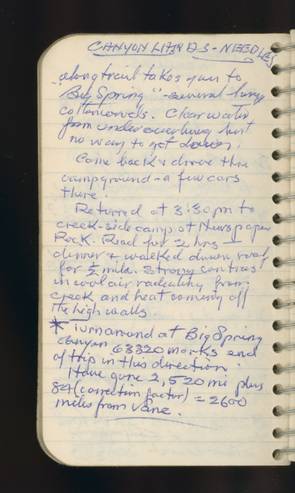 CANYON LANDS - NEEDLES
along trail takes you to
"Big Spring" - several large
cottonwoods. Clear water
from under overhang but
no way to get down.
Come back & drove thru
campground - a few cars
there.
Returned at 3:30 pm to
creek-side camp at Newspaper
Rock. Read for 2 hrs -
dinner & walked down road
for ½ mile. Strong contrast
in cool air radiating from
creek and heat coming off
the high walls.
* Turnaround at Big Spring
Canyon 63320 marks end
of trip in this direction.
Have gone 2,520 mi plus
84 (correction factor) = 2600
miles from